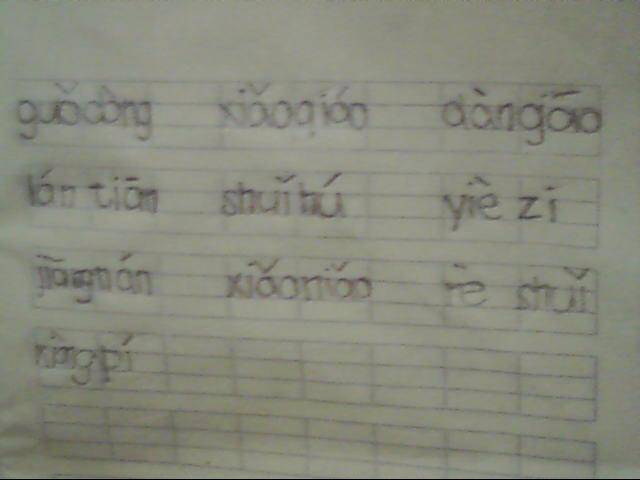 guǒdòng xiǎoqiáo dàngāo
lán tiān shuǐhú yiè zi
jiāngnán xiǎoniǎo rè shuǐ
xiàngpí